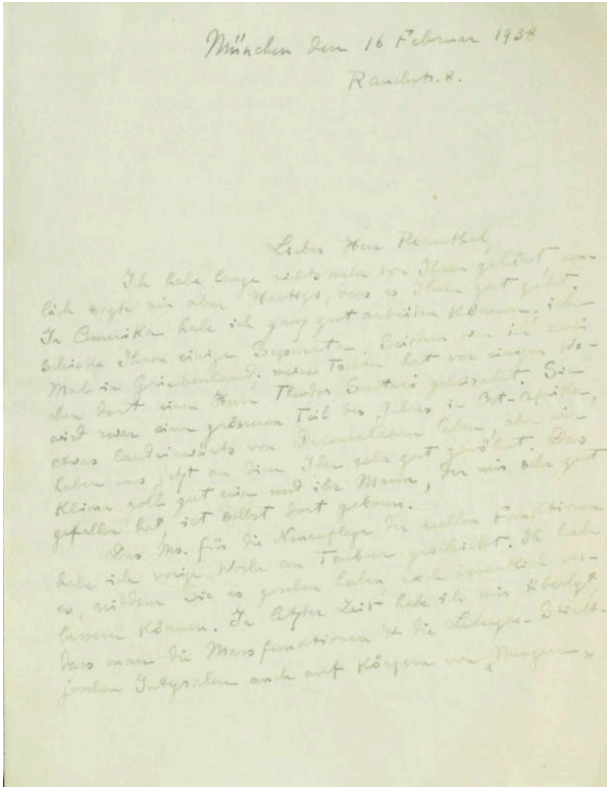 München den 16 Februar 1938
Rauchstr. 8.
Lieber Herr Rosenthal,
Ich habe lange nichts mehr von Ihnen gehört
lich sagte mir aber Hartogs, dass es Ihnen gut geht.
In Amerika habe ich ganz gut arbeiten können, ich
schicke Ihnen einige Separata. Seitdem war ich zwei
Mal in Griechenland, meine Tochter hat vor einigen Wo-
chen dort einen Herrn Theodor geheiratet. Sie
wird zwar einen grösseren Teil des Jahres in Ost-Afrika,
etwas landeinwärts von Daressalaam leben, aber wir
haben uns jetzt an die Idee sehr gut gewöhnt. Das
Klima soll gut sein und ihr Mann, der mir sehr gut
gefallen hat, ist selbst dort geboren.
Das Ms. für die Neuauflage der reellen Funktionen
habe ich vorige Woche an Teubner geschickt. Ich habe
es, seitdem Sie es gesehen haben, noch wesentlich ver-
bessern können. In letzter Zeit habe ich mir überlegt
dass man die Massfunktionen & die Lebesgue-Stielt-
jesschen Integralen auch auf Körpern von „Mengen"